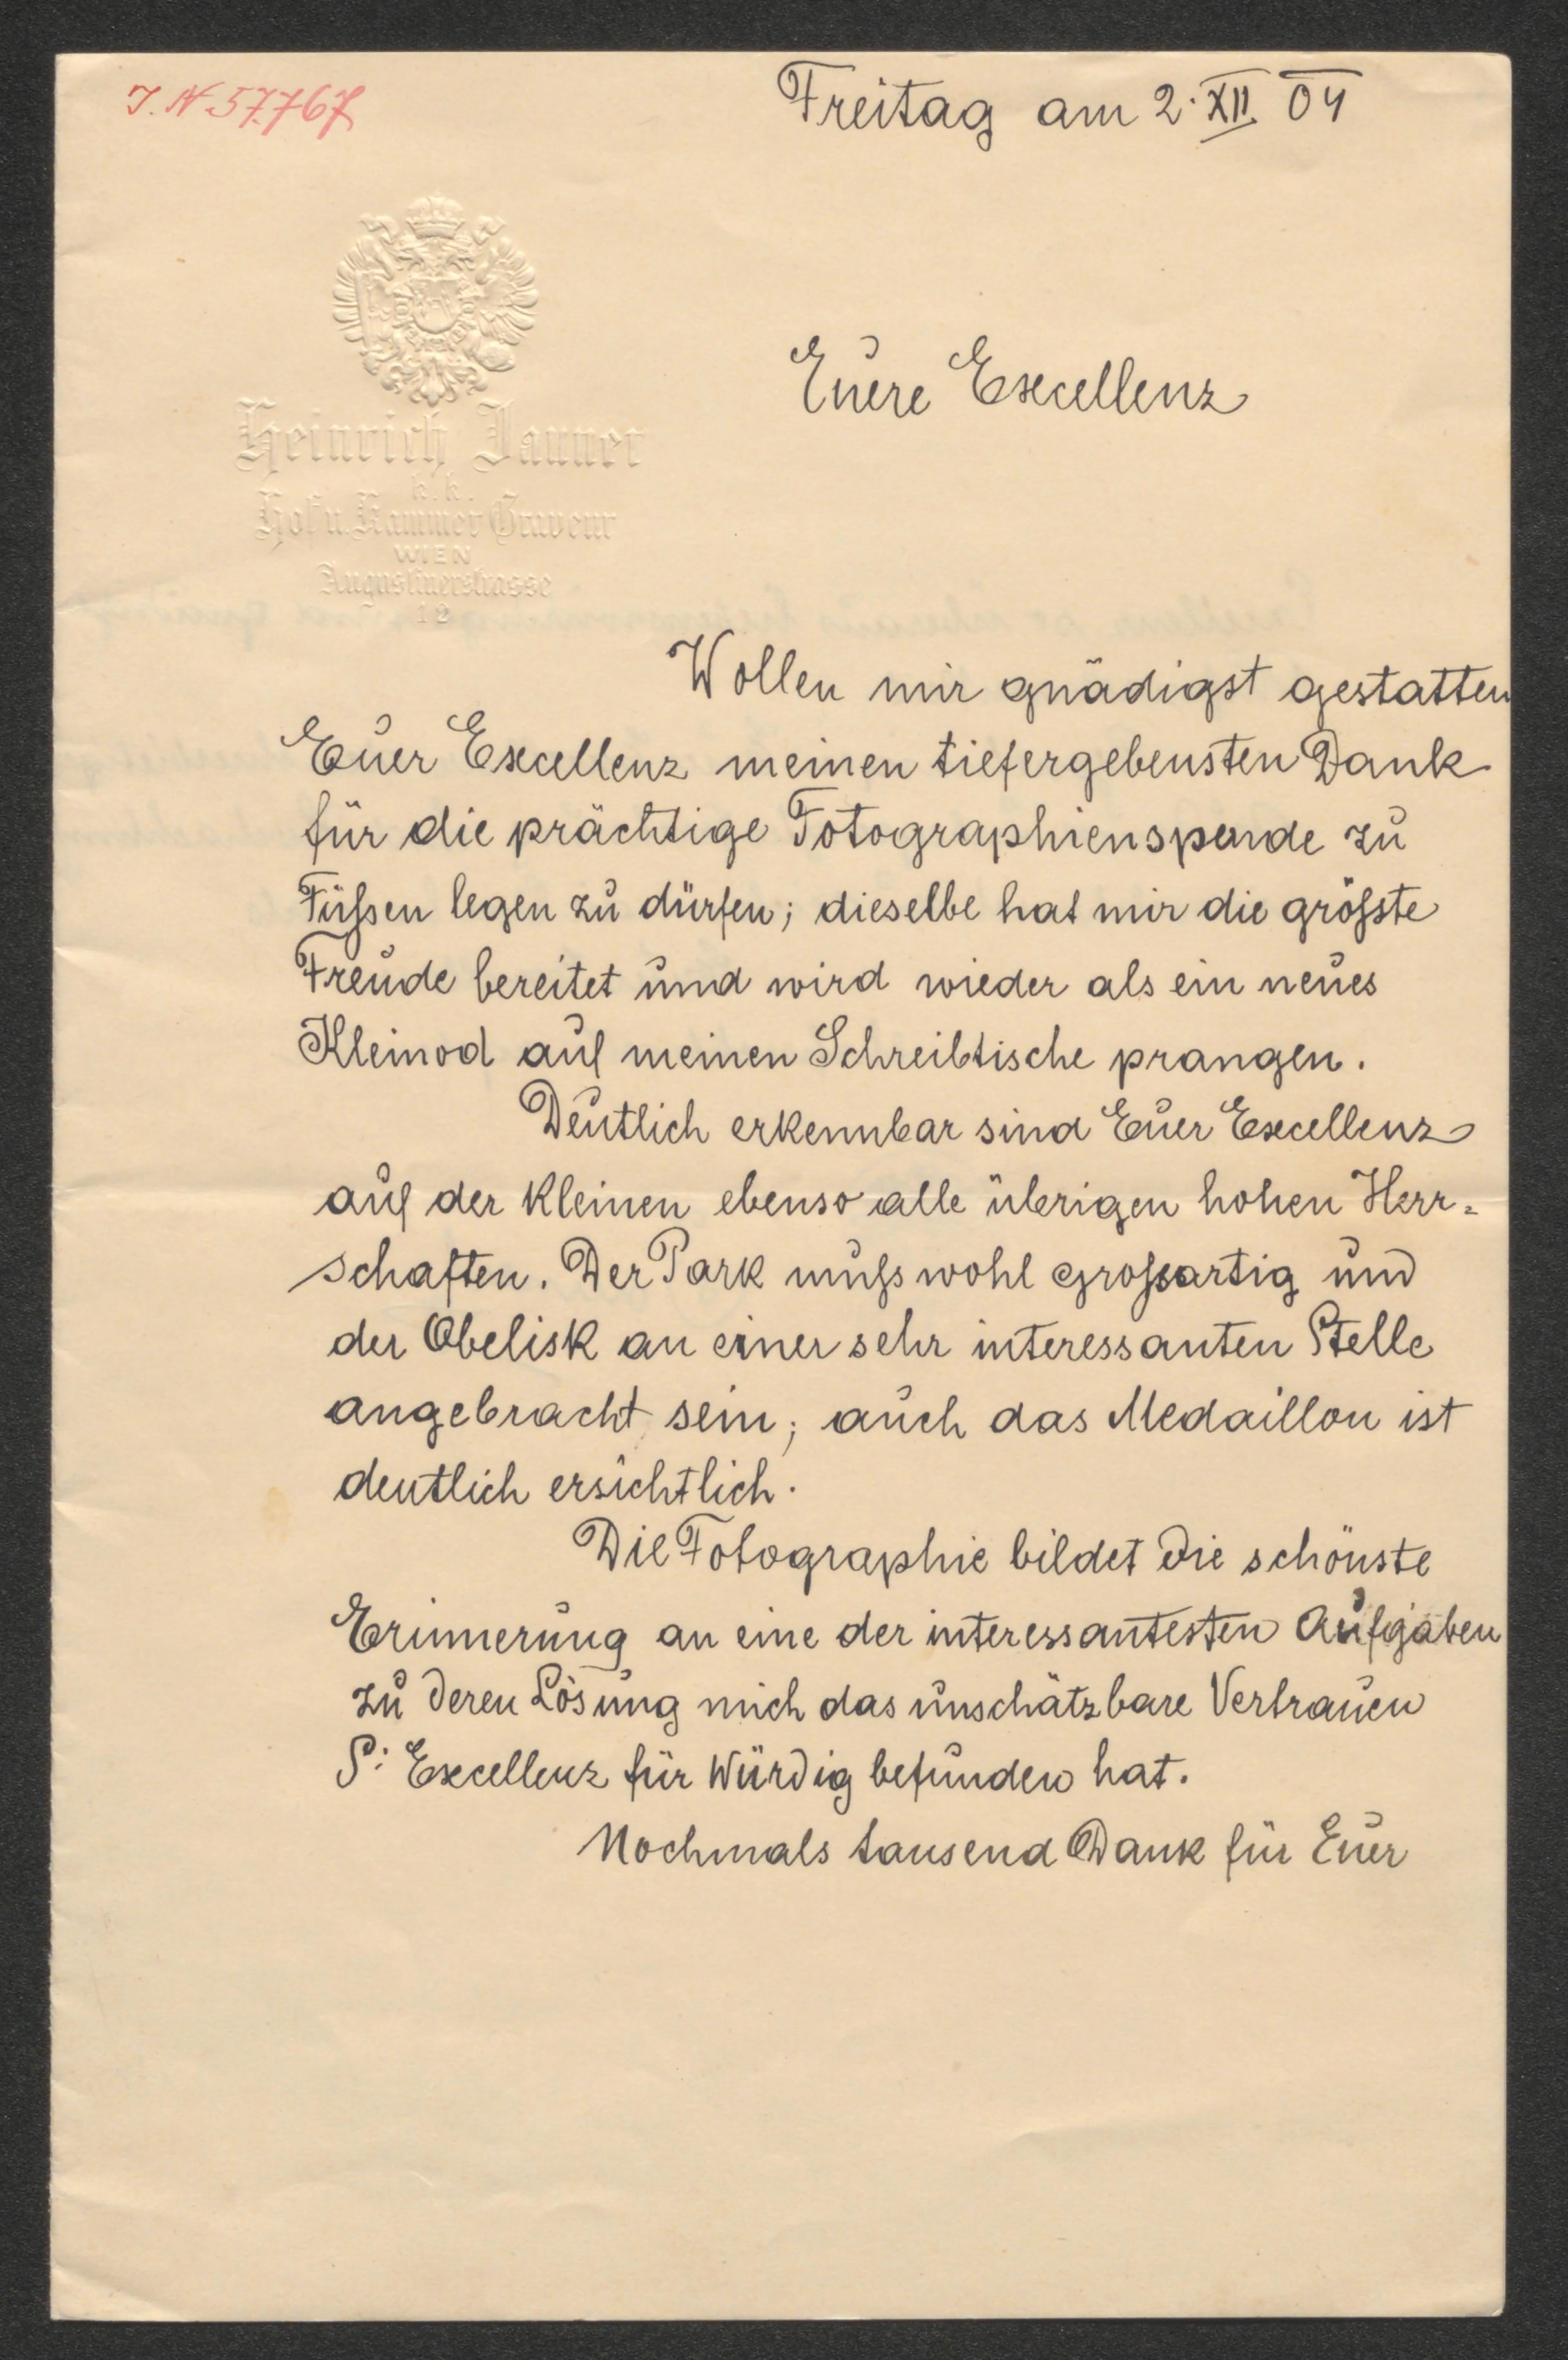 J. N 57.767
Freitag am 2. XII 04
Heinrich Jauner
k. k.
Hof u. Kammer Graveur
WIEN
Augustinerstrasse
12
Euere Excellenz
Wollen mir gnädigst gestatten
Euer Excellenz meinen tiefergebensten Dank
für die prächtige Fotographienspende zu
Füßen legen zu dürfen; dieselbe hat mir die größte
Freude bereitet und wird wieder als ein neues
Kleinod auf meinen Schreibtische prangen.
Deutlich erkennbar sind Euer Excellenz
auf der Kleinen ebenso alle übrigen hohen Herr-
schaften. Der Park muß wohl großartig und
der Obelisk an einer sehr interessanten Stelle
angebracht sein; auch das Medaillon ist
deutlich ersichtlich.
Die Fotographie bildet die schönste
Erinnerung an eine der interessantesten Aufgaben
zu deren Lösung mich das unschätzbare Vertrauen
Sr Excellenz für Würdig befunden hat.
Nochmals tausend Dank für Euer